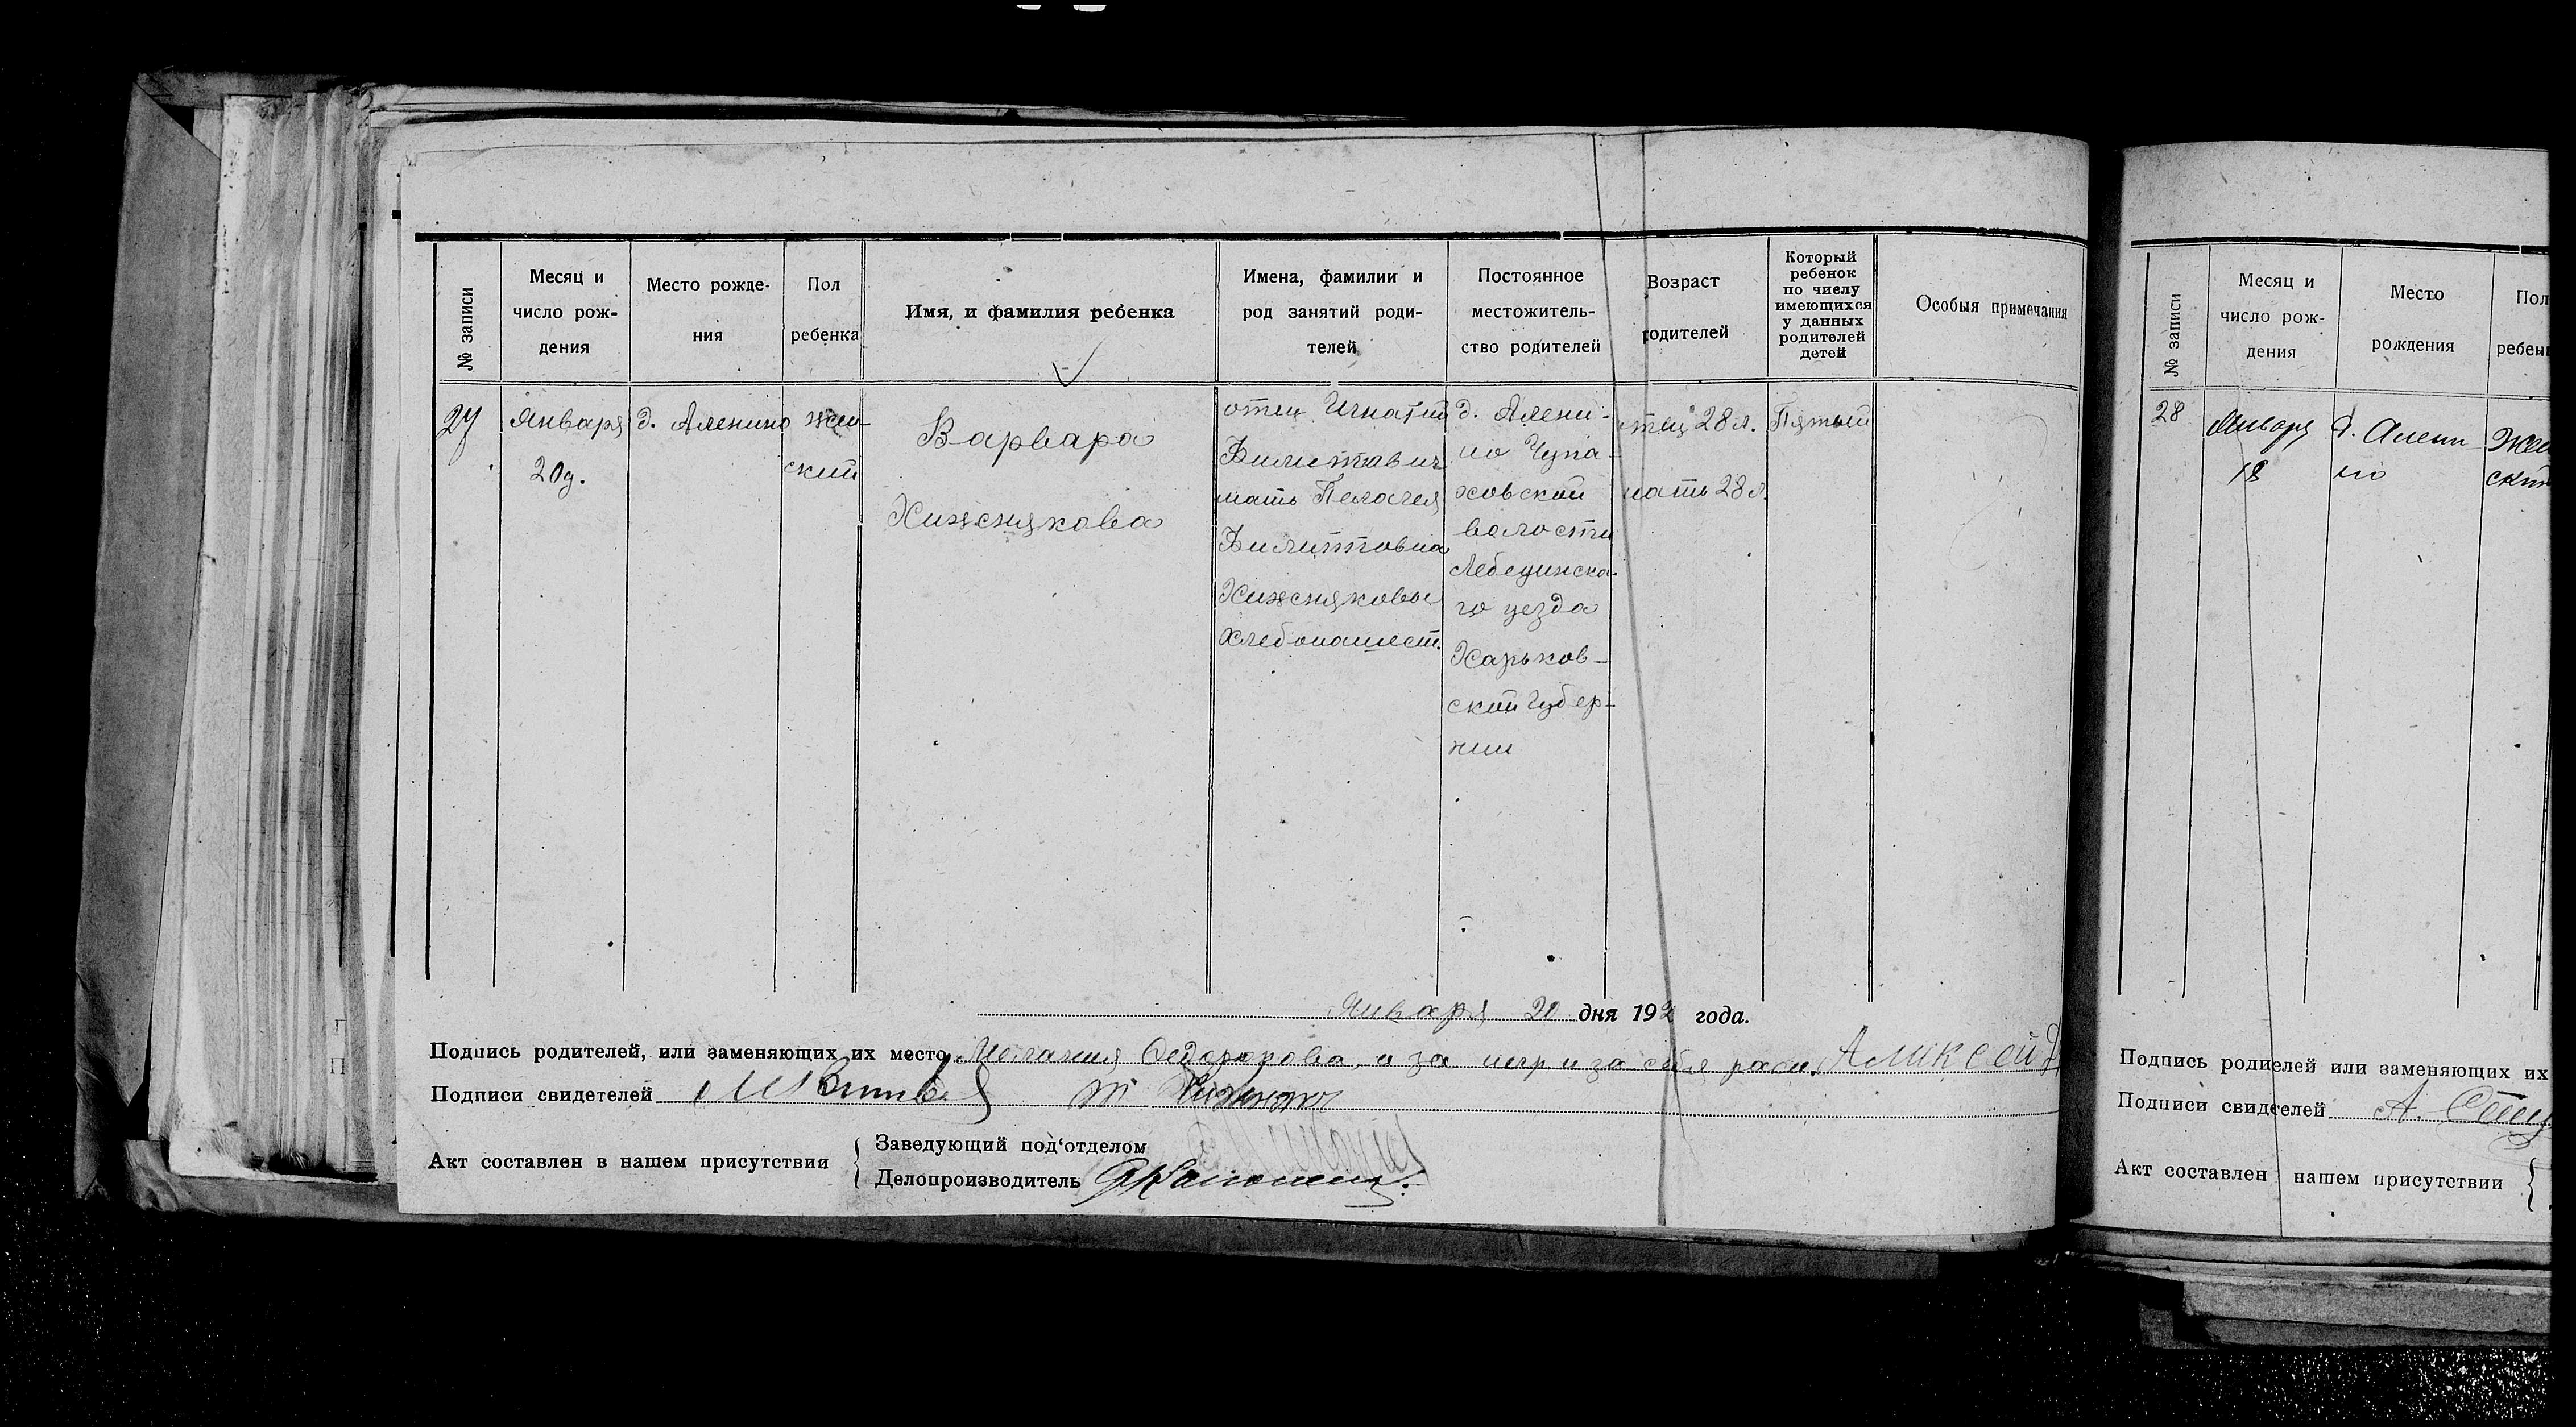 № записи
Месяц и
число рож-
дения
Место рожде-
ния
Пол
ребенка
Имя, и фамилия ребенка
Имена, фамилии и
род занятий роди-
телей
Постоянное
местожитель-
ство родителей
Возраст
родителей
Который
ребенок
по числу
имеющихся
у данных
родителей
детей
Особыя примечания
27
Января
20д.
д. Аленино
жен-
ский
Варвара
Хижнякова
отец Игнатий
Филиппович
мать Пелагея
Филипповна
Хижняковы
хлебопашест.
д. Алени-
но Чупа-
ховской
волости
Лебединска-
го уезда
Харьков-
ской Губер-
нии
отец 28 л.
мать 28 л.
Пятый
Января 20 дня 192 года.
Подпись родителей, или заменяющих их место Мелания а за негр и за себя расп. Аликсей
Подписи свидетелей
Акт составлен в нашем присутствии
Заведующий под‘отделом
Делопроизводитель
№ записи
Месяц и
число рож-
дения
Место
рождения
Пол
ребен
28
Января
18
д. Алени-
но
Жен
ски
Подпись родителей или заменяющих их
Подписи свидетелей А.
Акт составлен нашем присутствии